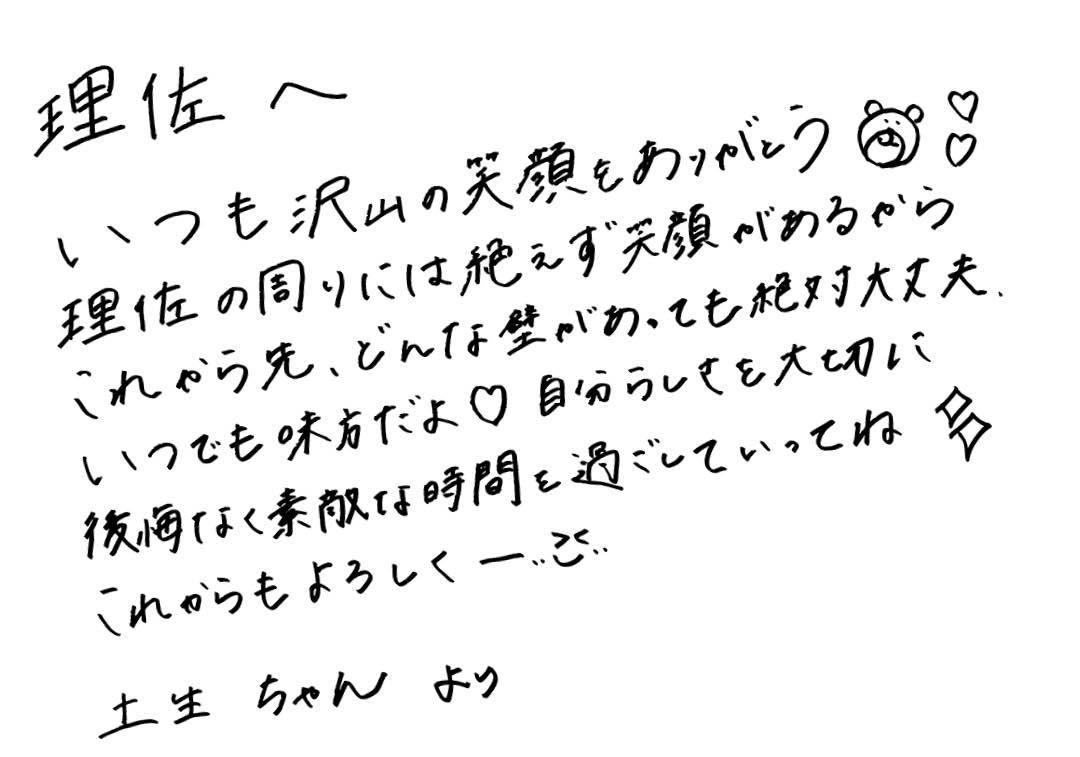 理佐へ
いつも沢山の笑顔をありがとう
理佐の周りには絶えず笑顔があるから
これから先、どんな壁があっても絶対大丈夫、
いつでも味方だよ♡ 自分らしさを大切に
後悔なく素敵な時間を過ごしていってね
これからもよろしくー
土生ちゃんより